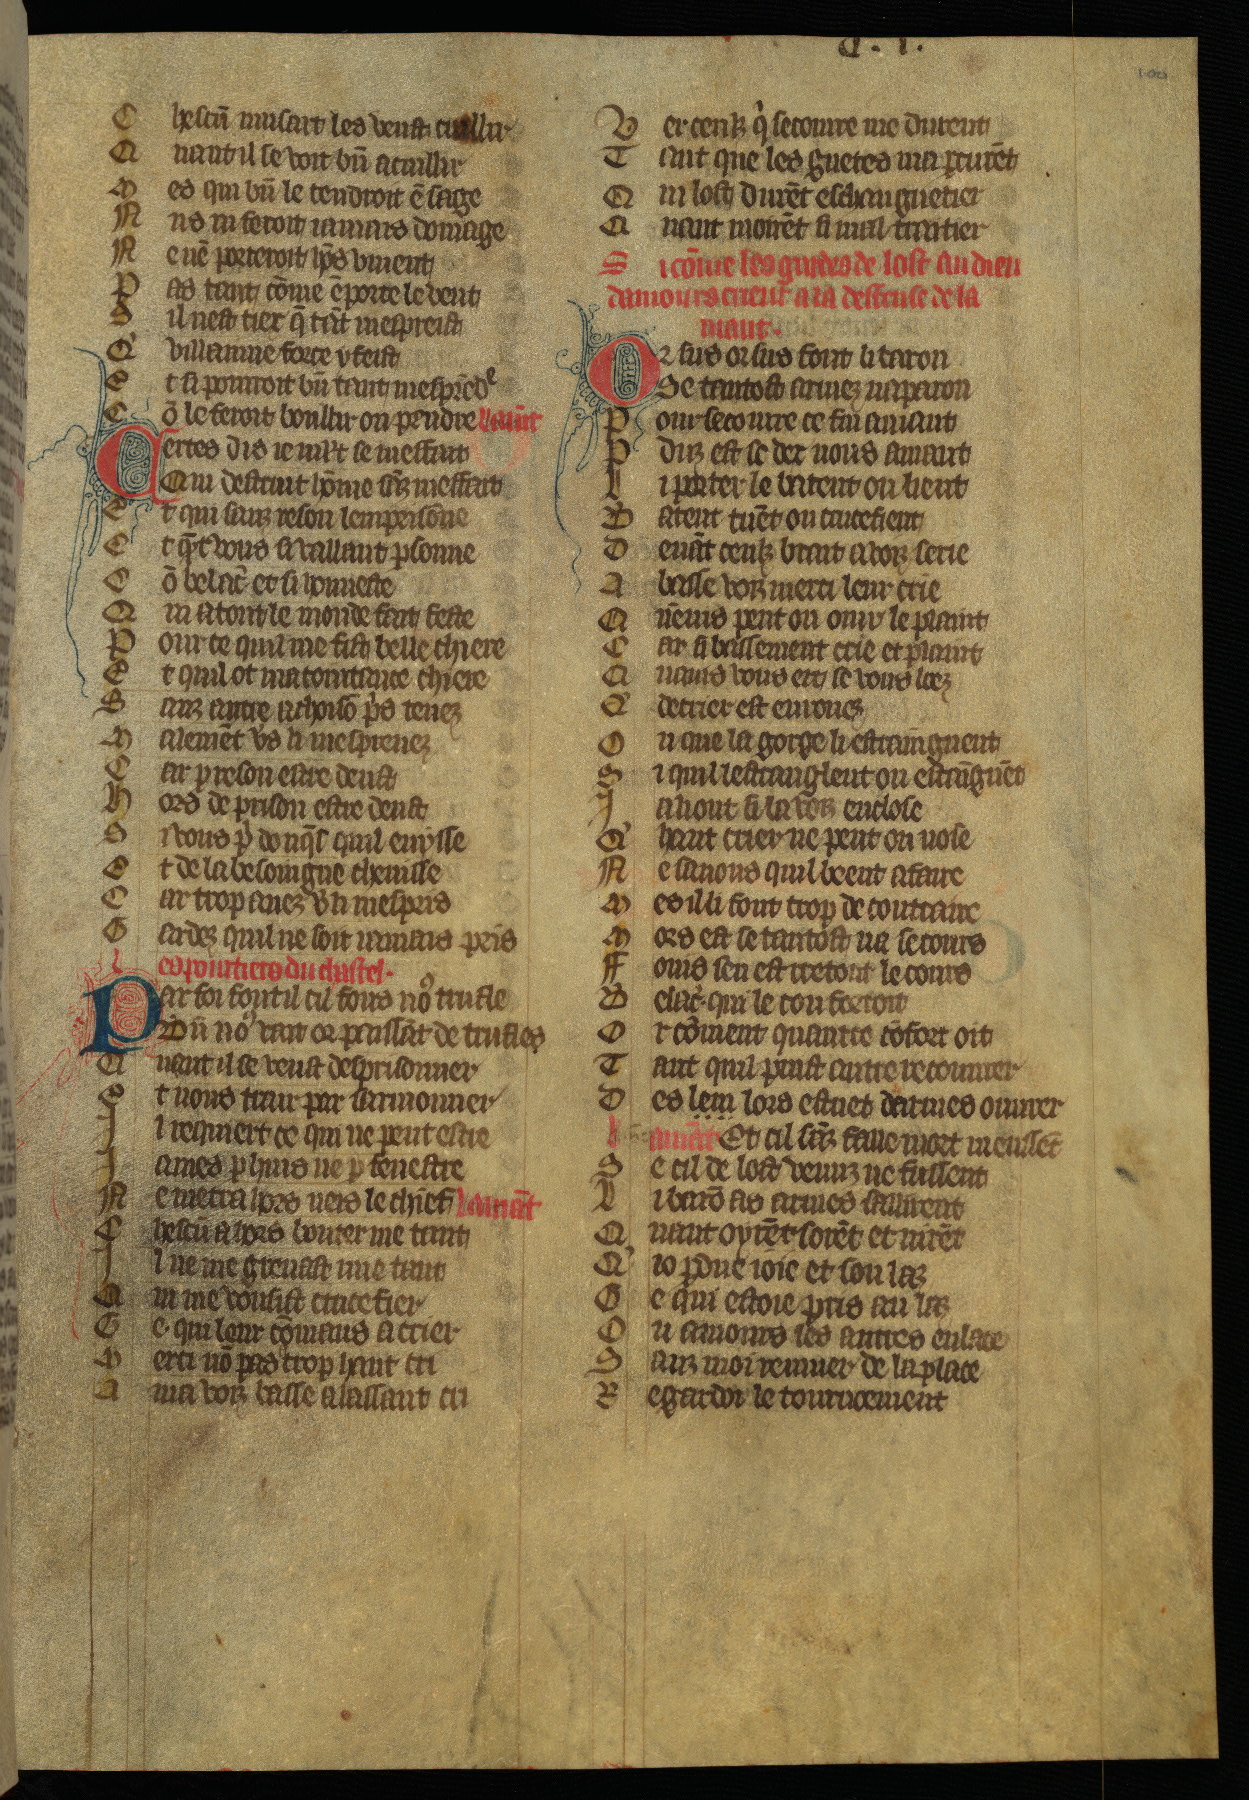 C. l.
100
C hescū musart les veust cuillir
Q uant il se voit bn̄ acuillir
M es qui bn̄ le tendroit ē sage
N us ni feroit iamais domage
N e nē porteroit hōs viuent
P as tant cōme ē porte le vent
S il nest tiex q̄ tāt mesprist
Q' villannie force y feist
E t si pourroit bn̄ tant mespredᵉ
C ō le feroit boullir ou prudre lamāt
Certes dis ie mlt se meffait
Qui destruit hōme sāz meffait
E t qui sanz reson lemprisōne
E t q̄t vous si vaillant psonne
C ō bel acꝰ et si honneste
Q ui a tout le monde fait feste
P our ce quil me fist belle chiere
E t quil ot macointance chiere
S anz autre achoisō pris tenez
M alemēt vs li mesprenez
C ar p reson estre deust
H ors de prison estre deust
S i vous p donq̄s quil en ysse
E t de la besoingne chenisse
C ar trop auez vs li mespris
G ardez quil ne soit iamais pris
l es portiers du chastel.
Par foi font il cil fous noꝰ trufle
Bn̄ noꝰ vait or paissāt de trufles
Q uant il se veust desprisonner
E t nous trair par sarmonner
I l requiert ce qui ne peut estre
I ames p huis ne p fenestre
N e metra hors neis le chief lamāt
C hescū a lors bouter me tent
I l ne me greuast mie tant
Q ui me vousist crucefier
G e. qui leur cōmans a crier
M erci nō pas trop haut cri
A ma voiz basse alassaut cri
V er ceulz q̄ secourre me durent
T ant que les guetes ma pcurēt
Q ui lost durēt eschauguetier
Q uant moirēt si mal traitier
S i cōme les gardes de lost au dieu
damours crient a la desfense de la
mant.
Or sus or sus font li baron
Se tantost armez naparon
P our secourre ce fin amant
P duz est se dex nous amant
L i portier le batent ou lient
B atent tuēt ou crucefient
D euāt ceulz brait a voiz serie
A basse voiz merci leur crie
Q' nēuis peut on ouir le plaint
C ar si bassement crie et plaint
Q' auis vous ert se vous loez
Q' de crier est enrouez
O u que la gorge li estraingnent
S i quil lestranglent ou estaīgnēt
I a li ont si la voiz enclose
Q' haut crier ne peut ou nose
N e sauons quil beent a faire
M es il li font trop de contraire
M ors est se tantost na secours
F ouis sen est tretout le cours
B el acꝰ. qui le confortoit
O r cōment quautre cōfort oit
T ant quil puist autre recouurer
D es lem lors estuet darmes ouurer
l amāt Et cil sāz faille mort meussēt
S e cil de lost venuz ne fussent
L i barō as armes saillirent
Q uant oyrēt sorēt et virēt
Q' ia pdue ioie et soulaz
G e qui estoie pris au laz
O u amours les autres enlace
S anz moi remuer de la place
R egardoi le tournoiement